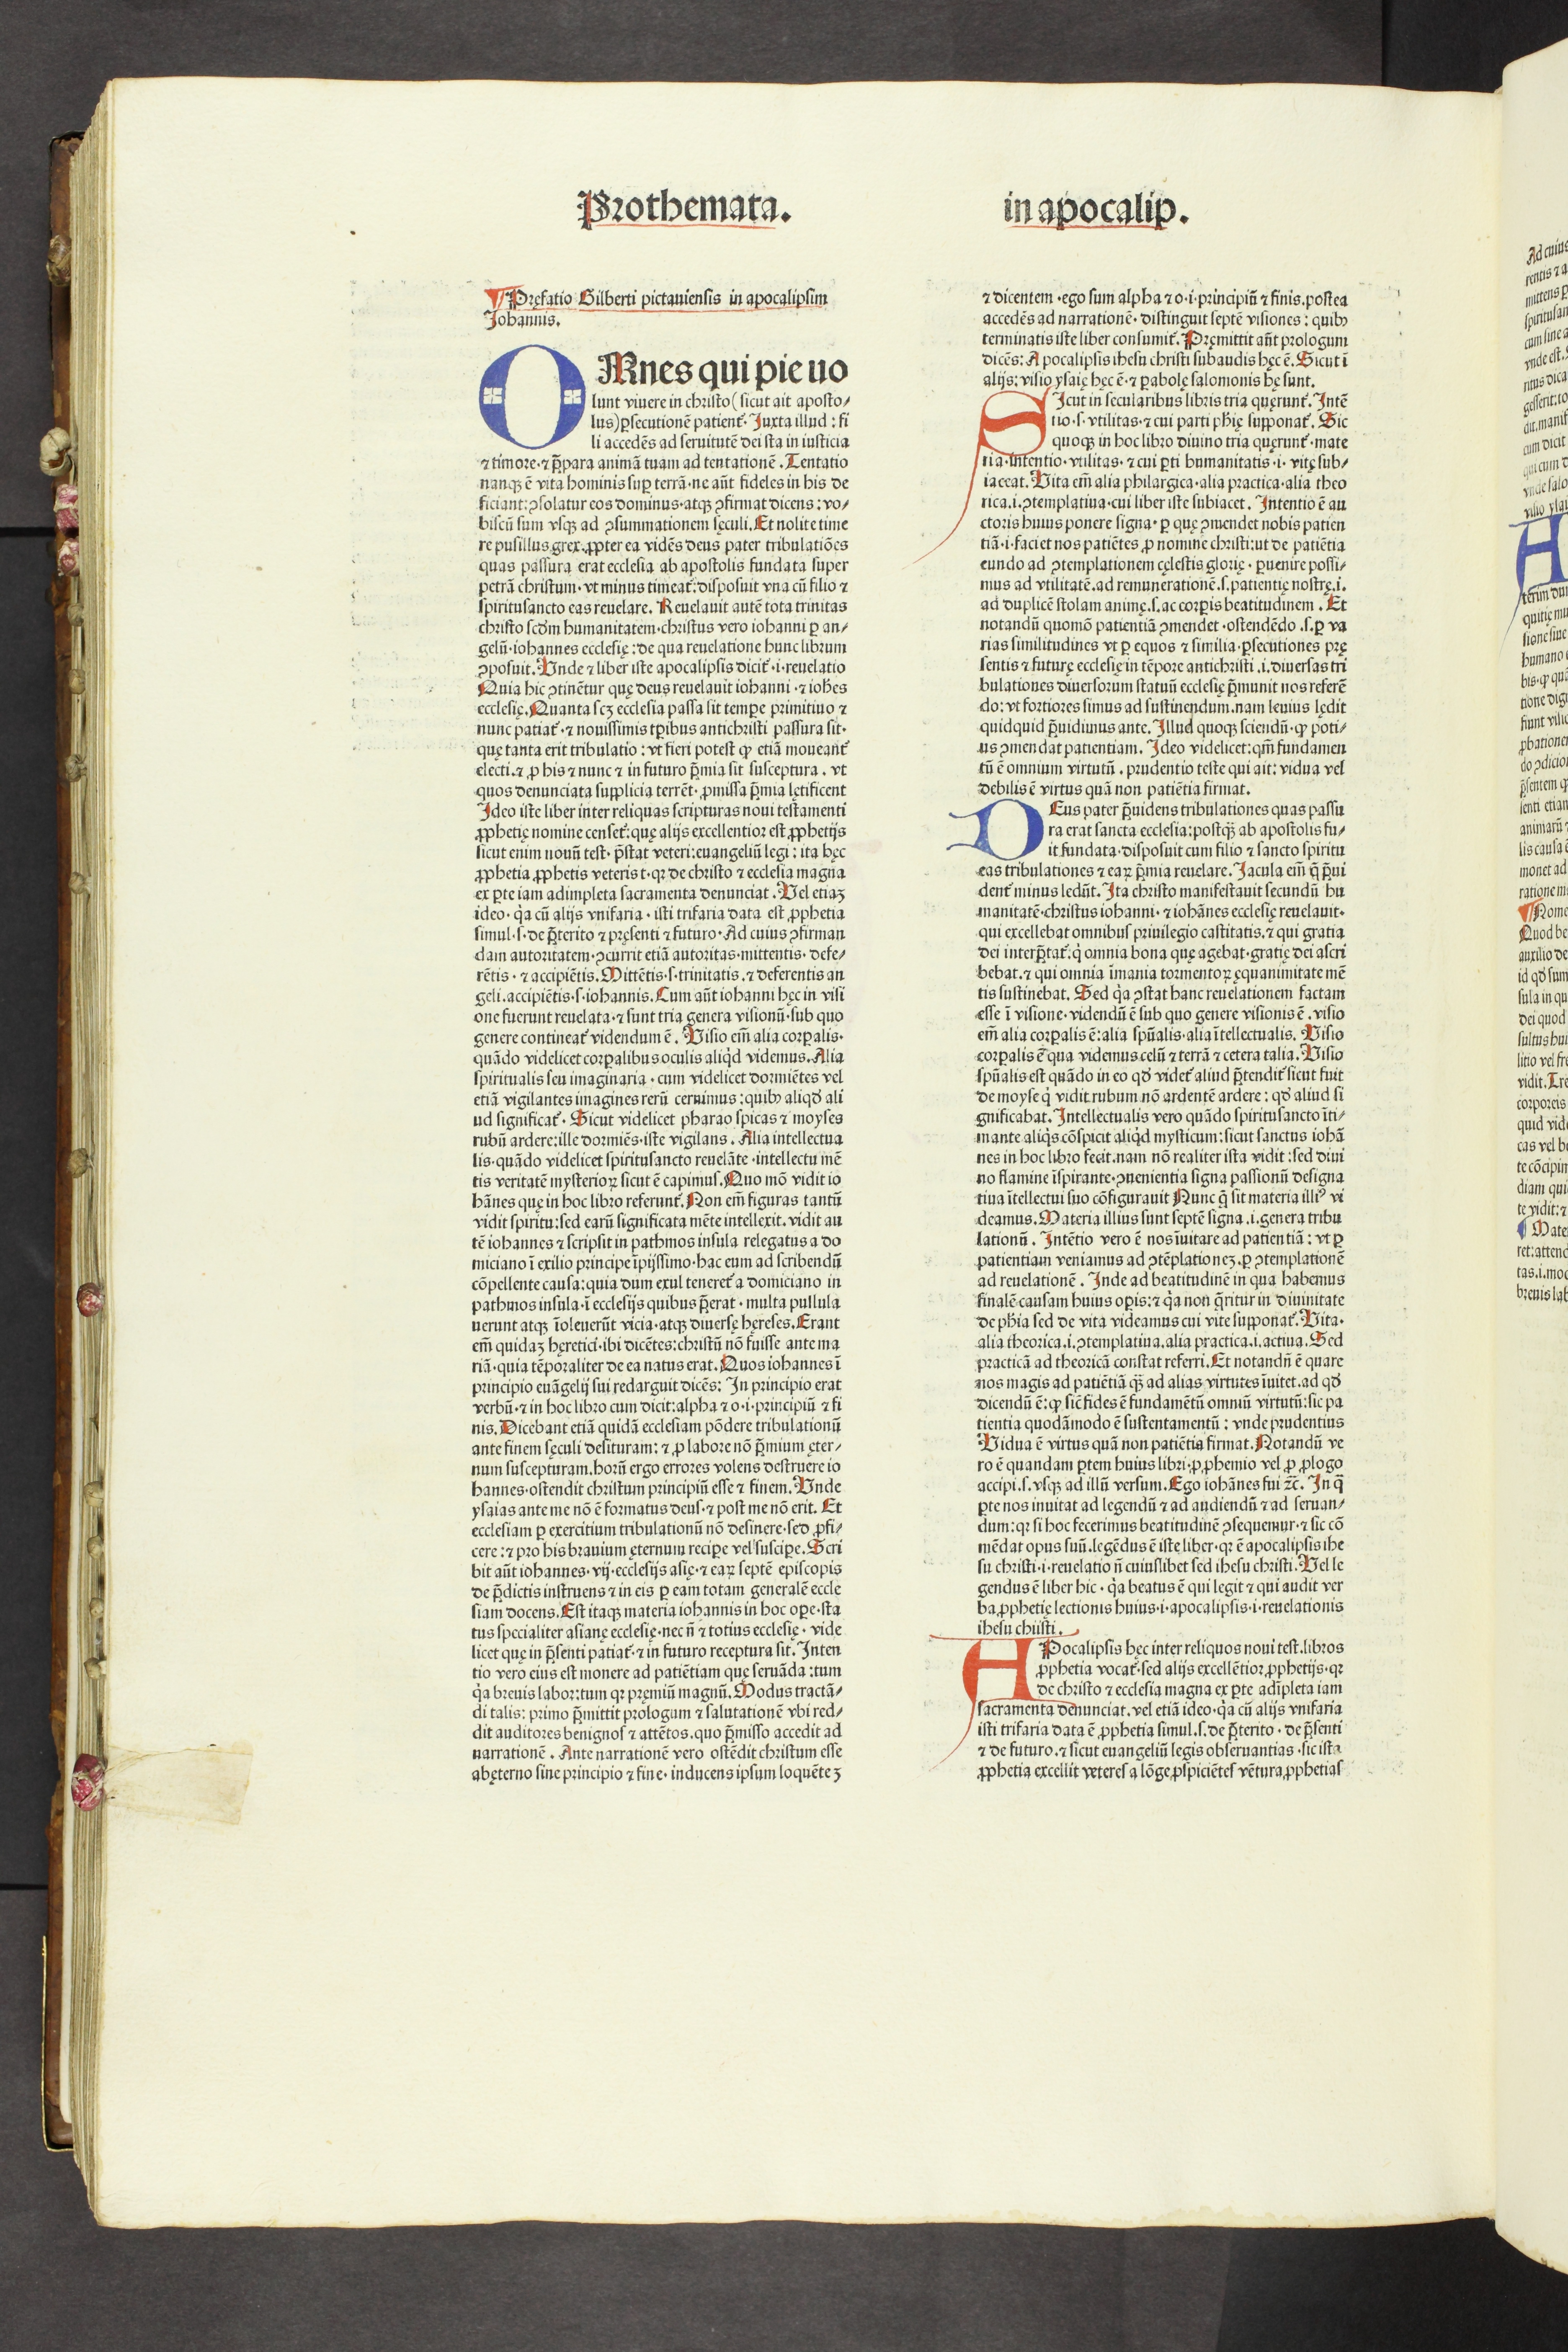 Prothemata.
in apocalip.
¶ Pręfatio Gilberti pictauiensis in apocalipsim
Johannis.
OMnes qui pie uo
lunt viuere in christo (sicut ait aposto⸗
lus) ꝑsecutionē patient᷑. Juxta illud : fi
li accedēs ad seruitutē dei sta in iusticia
⁊ timore·⁊ p̄para animā tuam ad tentationē. Tentatio
nanqꝫ ē vita hominis suꝑ terrā·ne aūt fideles in his de
ficiant: ꝯsolatur eos dominus·atqꝫ ꝯfirmat dicens: vo⸗
biscū sum vsqꝫ ad ꝯsummationem sęculi. Et nolite time
re pusillus grex. ꝓpter ea vidēs deus pater tribulatiōes
quas passura erat ecclesia ab apostolis fundata super
petrā christum·vt minus timeat᷑: disposuit vna cū filio ⁊
spiritusancto eas reuelare. Reuelauit autē tota trinitas
christo scd̄m humanitatem·christus vero iohanni ꝑ an⸗
gelū·iohannes ecclesię: de qua reuelatione hunc librum
ꝯposuit. Vnde ⁊ liber iste apocalipsis dicit᷑·i·reuelatio
Quia hic ꝯtinētur quę deus reuelauit iohanni·⁊ ioh̄es
ecclesię. Quanta scꝫ ecclesia passa sit temꝑe primitiuo ⁊
nunc patiat᷑·⁊ nouissimis tꝑibus antichristi passura sit·
quę tanta erit tribulatio: vt fieri potest ꝙ etiā moueant᷑
electi.⁊ ꝓ his ⁊ nunc ⁊ in futuro p̄mia sit susceptura. vt
quos denunciata supplicia terrēt·ꝓmissa p̄mia lętificent
Ideo iste liber inter reliquas scripturas noui testamenti
ꝓphetię nomine censet᷑: quę alijs excellentior est ꝓphetijs
sicut enim nouū test·p̄stat veteri: euangeliū legi: ita hęc
ꝓphetia ꝓphetis veteris t·qꝛ de christo ⁊ ecclesia magna
ex ꝑte iam adimpleta sacramenta denunciat. Vel etiaꝫ
ideo·q̇a cū alijs vnifaria·isti trifaria data est ꝓphetia
simul·s·de p̄terito ⁊ pręsenti ⁊ futuro·Ad cuius ꝯfirman
dam autoritatem·ꝯcurrit etiā autoritas·mittentis·defe⸗
rētis·⁊ accipiētis. Mittētis·s·trinitatis·⁊ deferentis an
geli·accipiētis·s·iohannis. Cum aūt iohanni hęc in visi
one fuerunt reuelata·⁊ sunt tria genera visionū·sub quo
genere contineat᷑ videndum ē. Visio em̄ alia corꝑalis·
quādo videlicet corꝑalibus oculis aliq̇d videmus. Alia
spiritualis seu imaginaria·cum videlicet dormiētes vel
etiā vigilantes imagines rerū cernimus: quibꝰ aliqd̄ ali
ud significat᷑. Sicut videlicet pharao spicas ⁊ moyses
rubū ardere: ille dormiēs·iste vigilans. Alia intellectua
lis·quādo videlicet spiritusancto reuelāte·intellectu mē
tis veritatē mysterioꝝ sicut ē capimus. Quo mō vidit io
hānes quę in hoc libro referunt᷑. Non em̄ figuras tantū
vidit spiritu: sed earū significata mēte intellexit. vidit au
tē iohannes ⁊ scripsit in pathmos insula relegatus a do
miciano ī exilio principe īpijssimo·hac eum ad scribendū
cōpellente causa: quia dum exul teneret᷑ a domiciano in
pathmos insula·ī ecclesijs quibus p̄erat·multa pullula
uerunt atqꝫ īoleuerūt vicia·atqꝫ diuersę hęreses. Erant
em̄ quidaꝫ hęretici·ibi dicētes: christū nō fuisse ante ma
riā·quia tēporaliter de ea natus erat. Quos iohannes ī
principio euāgelij sui redarguit dicēs: In principio erat
verbū·⁊ in hoc libro cum dicit: alpha ⁊ o·i·principiū ⁊ fi
nis. Dicebant etiā quidā ecclesiam pōdere tribulationū
ante finem sęculi desituram: ⁊ ꝓ labore nō p̄mium ęter⸗
num suscepturam. horū ergo errores volens destruere io
hannes·ostendit christum principiū esse ⁊ finem. Vnde
ysaias ante me nō ē formatus deus·⁊ post me nō erit. Et
ecclesiam ꝑ exercitium tribulationū nō desinere·sed ꝓfi⸗
cere: ⁊ pro his brauium ęternum reciꝑe vel susciꝑe. Scri
bit aūt iohannes·vij·ecclesijs asię·⁊ eaꝝ septē episcopis
de p̄dictis instruens ⁊ in eis ꝑ eam totam generalē eccle
siam docens. Est itaqꝫ materia iohannis in hoc oꝑe·sta
tus specialiter asianę ecclesię·nec n̄ ⁊ totius ecclesię·vide
licet quę in p̄senti patiat᷑·⁊ in futuro receptura sit. Inten
tio vero eius est monere ad patiētiam quę seruāda: tum
q̇a breuis labor: tum qꝛ pręmiū magnū. Modus tractā⸗
di talis: primo p̄mittit prologum ⁊ salutationē vbi red⸗
dit auditores benignos ⁊ attētos. quo p̄misso accedit ad
narrationē. Ante narrationē vero ostēdit christum esse
abęterno sine principio ⁊ fine·inducens ipsum loquēteꝫ
⁊ dicentem·ego sum alpha ⁊ o·i·principiū ⁊ finis. postea
accedēs ad narrationē·distinguit septē visiones: quibꝰ
terminatis iste liber consumit᷑. Pręmittit aūt prologum
dicēs: Apocalipsis ihesu christi subaudis hęc ē. Sicut ī
alijs: visio ysaię hęc ē·⁊ ꝑabolę salomonis hę sunt.
SIcut in secularibus libris tria quęrunt᷑. Intē
tio·s·vtilitas·⁊ cui parti phię supponat᷑. Sic
quoqꝫ in hoc libro diuino tria quęrunt᷑·mate
ria·intentio·vtilitas·⁊ cui ꝑti humanitatis·i·vitę sub⸗
iaceat. Vita em̄ alia philargica·alia practica·alia theo
rica.i.ꝯtemplatiua·cui liber iste subiacet. Intentio ē au
ctoris huius ponere signa·ꝑ quę ꝯmendet nobis patien
tiā·i·faciet nos patiētes ꝓ nomine christi: ut de patiētia
eundo ad ꝯtemplationem cęlestis glorię·ꝑuenire possi⸗
mus ad vtilitatē·ad remunerationē.s.patientię nostrę.i.
ad duplicē stolam animę.s.ac corꝑis beatitudinem. Et
notandū quomō patientiā ꝯmendet·ostendēdo.s.ꝑ va
rias similitudines vt ꝑ equos ⁊ similia·ꝑsecutiones prę
sentis ⁊ futurę ecclesię in tēpore antichristi.i.diuersas tri
bulationes diuersorum statuū ecclesię p̄munit nos referē
do: vt fortiores simus ad sustinendum. nam leuius lędit
quidquid p̄uidimus ante. Illud quoqꝫ sciendū·ꝙ poti⸗
us ꝯmendat patientiam. Ideo videlicet: qm̄ fundamen
tū ē omnium virtutū. prudentio teste qui ait: vidua vel
debilis ē virtus quā non patiētia firmat.
DEus pater p̄uidens tribulationes quas passu
ra erat sancta ecclesia: postqꝫ ab apostolis fu⸗
it fundata·disposuit cum filio ⁊ sancto spiritu
eas tribulationes ⁊ eaꝝ p̄mia reuelare. Jacula em̄ q̄ p̄ui
dent᷑ minus ledūt. Ita christo manifestauit secundū hu
manitatē·christus iohanni·⁊ iohānes ecclesię reuelauit·
qui excellebat omnibus priuilegio castitatis.⁊ qui gratia
dei interp̄tat᷑: q̇ omnia bona quę agebat·gratię dei ascri
bebat.⁊ qui omnia īmania tormentoꝝ ęquanimitate mē
tis sustinebat. Sed q̇a ꝯstat hanc reuelationem factam
esse ī visione·videndū ē sub quo genere visionis ē. visio
em̄ alia corꝑalis ē: alia spūalis·alia ītellectualis. Visio
corꝑalis ē qua videmus celū ⁊ terrā ⁊ cetera talia. Visio
spūalis est quādo in eo qd̄ videt᷑ aliud p̄tendit᷑ sicut fuit
de moyse q̇ vidit rubum nō ardentē ardere: qd̄ aliud si
gnificabat. Intellectualis vero quādo spiritusancto īti⸗
mante aliq̇s cōspicit aliq̇d mysticum: sicut sanctus iohā
nes in hoc libro fecit. nam nō realiter ista vidit: sed diui
no flamine īspirante·ꝯuenientia signa passionū designa
tiua ītellectui suo cōfigurauit Nunc q̄ sit materia illiꝰ vi
deamus. Materia illius sunt septē signa.i.genera tribu
lationū. Intētio vero ē nos īuitare ad patientiā: vt ꝑ
patientiam veniamus ad ꝯtēplationeꝫ.ꝑ ꝯtemplationē
ad reuelationē. Inde ad beatitudinē in qua habemus
finalē causam huius oꝑis: ⁊ q̇a non q̄ritur in diuinitate
de phia sed de vita videamus cui vite supponat᷑. Vita·
alia theorica.i.ꝯtemplatiua.alia practica.i.actiua. Sed
practicā ad theoricā constat referri. Et notandū ē quare
nos magis ad patiētiā qꝫ̄ ad alias virtutes īuitet.ad qd̄
dicendū ē: ꝙ sic̄ fides ē fundamētū omniū virtutū: sic pa
tientia quodāmodo ē sustentamentū: vnde prudentius
Vidua ē virtus quā non patiētia firmat. Notandū ve
ro ē quandam ꝑtem huius libri·ꝓ ꝓhemio vel ꝓ ꝓlogo
accipi.s.vsqꝫ ad illū versum. Ego iohānes fui ⁊c̄. In q̄
ꝑte nos inuitat ad legendū ⁊ ad audiendū ⁊ ad seruan⸗
dum: qꝛ si hoc fecerimus beatitudinē ꝯsequemur·⁊ sic cō
mēdat opus suū. legēdus ē iste liber·qꝛ ē apocalipsis ihe
su christi·i·reuelatio n̄ cuiuslibet sed ihesu christi. Vel le
gendus ē liber hic·q̇a beatus ē qui legit ⁊ qui audit ver
ba ꝓphetię lectionis huius·i·apocalipsis·i·reuelationis
ihesu christi.
APocalipsis hęc inter reliquos noui test.libros
ꝓphetia vocat᷑·sed alijs excellētior ꝓphetijs·qꝛ
de christo ⁊ ecclesia magna ex ꝑte adīpleta iam
sacramenta denunciat. vel etiā ideo·q̇a cū alijs vnifaria
isti trifaria data ē ꝓphetia simul.s.de p̄terito·de p̄senti
⁊ de futuro.⁊ sicut euangeliū legis obseruantias·sic ista
ꝓphetia excellit veteres a lōge ꝓspiciētes vētura ꝓphetias